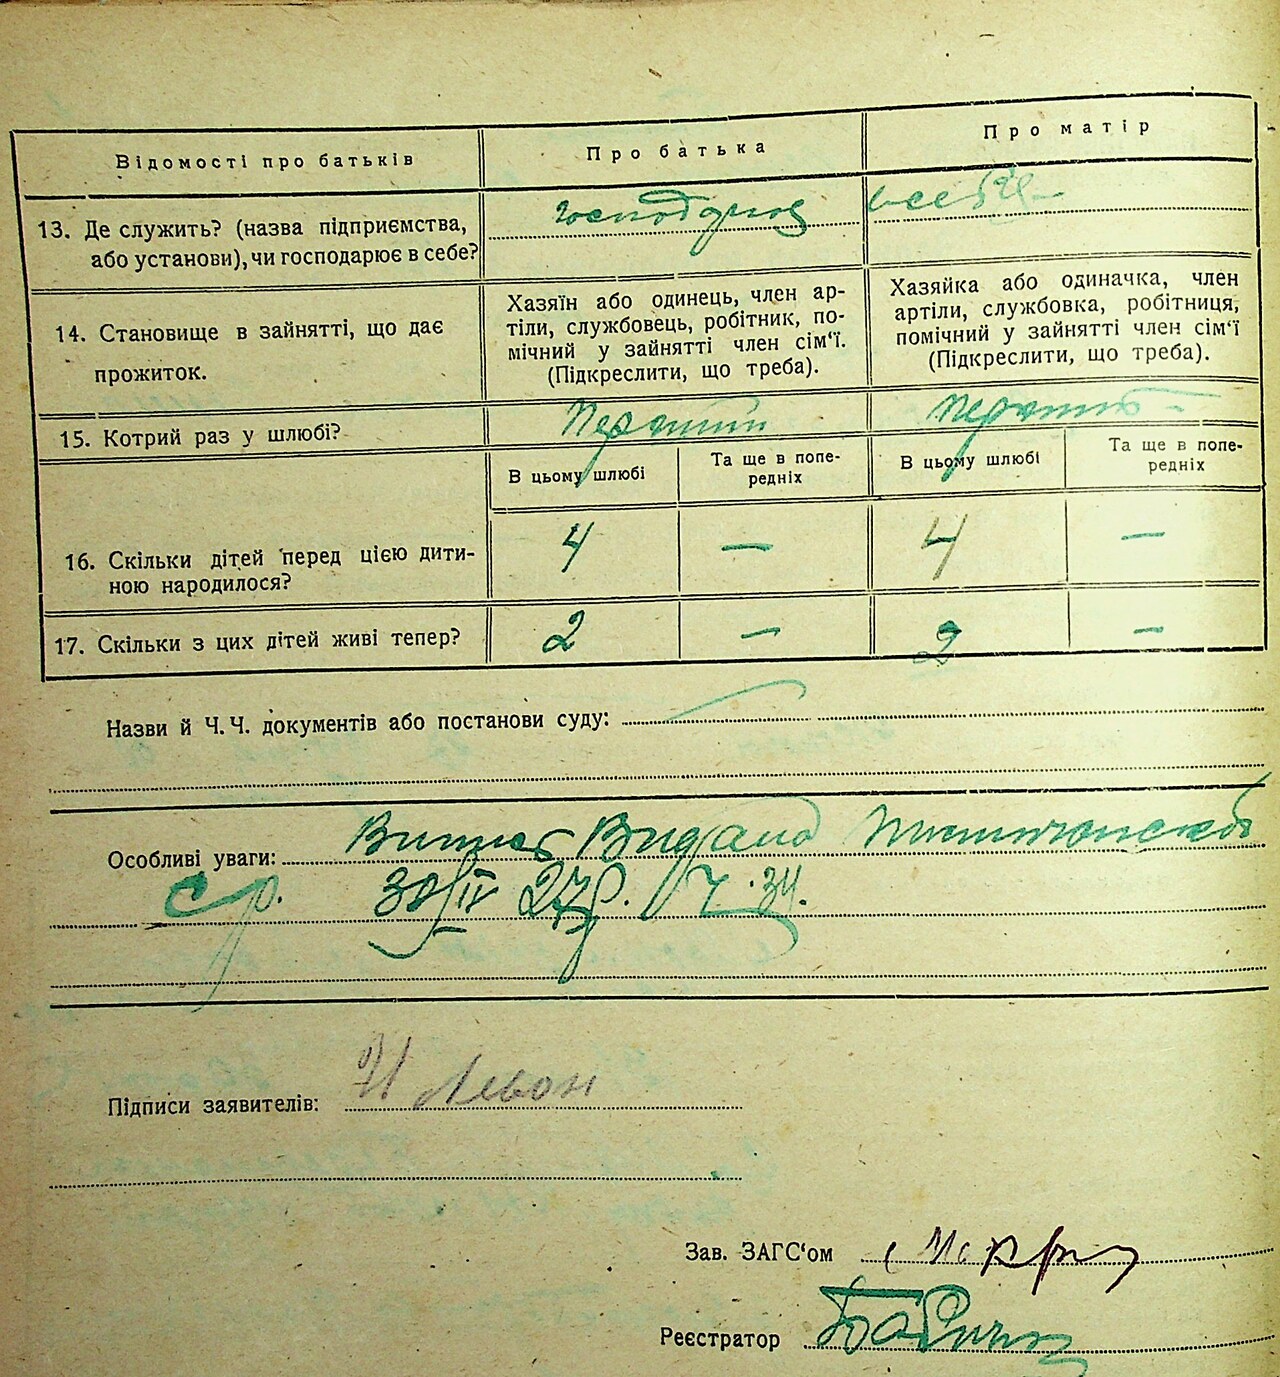 Відомості про батьків
Про батька
Про матір
13. Де служить? (назва підприємства,
або установи), чи господарює в себе?
14. Становище в зайнятті, що дає
прожиток.
Хазяїн або одинець, член ар-
тіли, службовець, робітник, по-
мічний у зайнятті член сім‘ї.
(Підкреслити, що треба).
Хазяйка або одиначка, член
артіли, службовка, робітниця,
помічний у зайнятті член сім‘ї
(Підкреслити, що треба).
15. Котрий раз у шлюбі?
В цьому шлюбі
Та ще в попе-
редніх
В цьому шлюбі
Та ще в попе-
редніх
16. Скільки дітей перед цією дити-
ною народилося?
4 — 4 —
17. Скільки з цих дітей живі тепер?
2 — 2 —
Назви й Ч. Ч. документів або постанови суду:
Особливі уваги: Витяг Видано
с/р. 30/IV 27р. 34.
Підписи заявителів: Левон
Зав. ЗАГС‘ом
Реєстратор